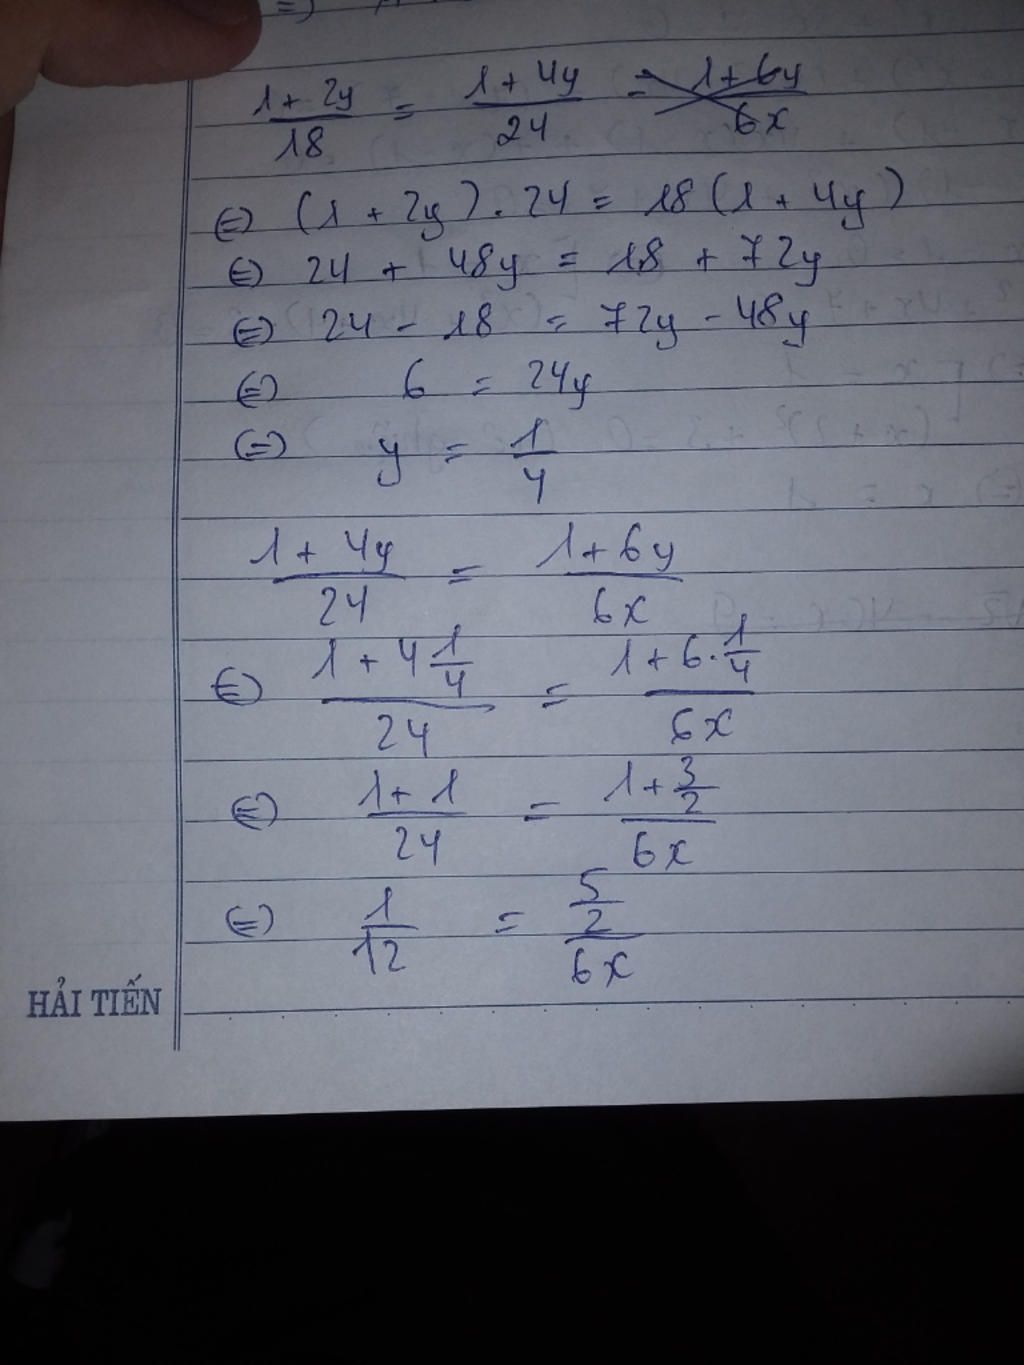 (1 + 2y)/18 = (1 + 4y)/24 = (1 + 6y)/6x
(=) (1 + 2y) . 24 = 18 (1 + 4y)
(=) 24 + 48y = 18 + 72y
(=) 24 - 18 = 72y - 48y
(=) 6 = 24y
(=) y = 1/4
(1 + 4y)/24 = (1 + 6y)/6x
(=) (1 + 4 1/4)/24 = (1 + 6 . 1/4)/6x
(=) (1 + 1)/24 = (1 + 3/2)/6x
(=) 1/12 = (5/2)/6x
HẢI TIẾN